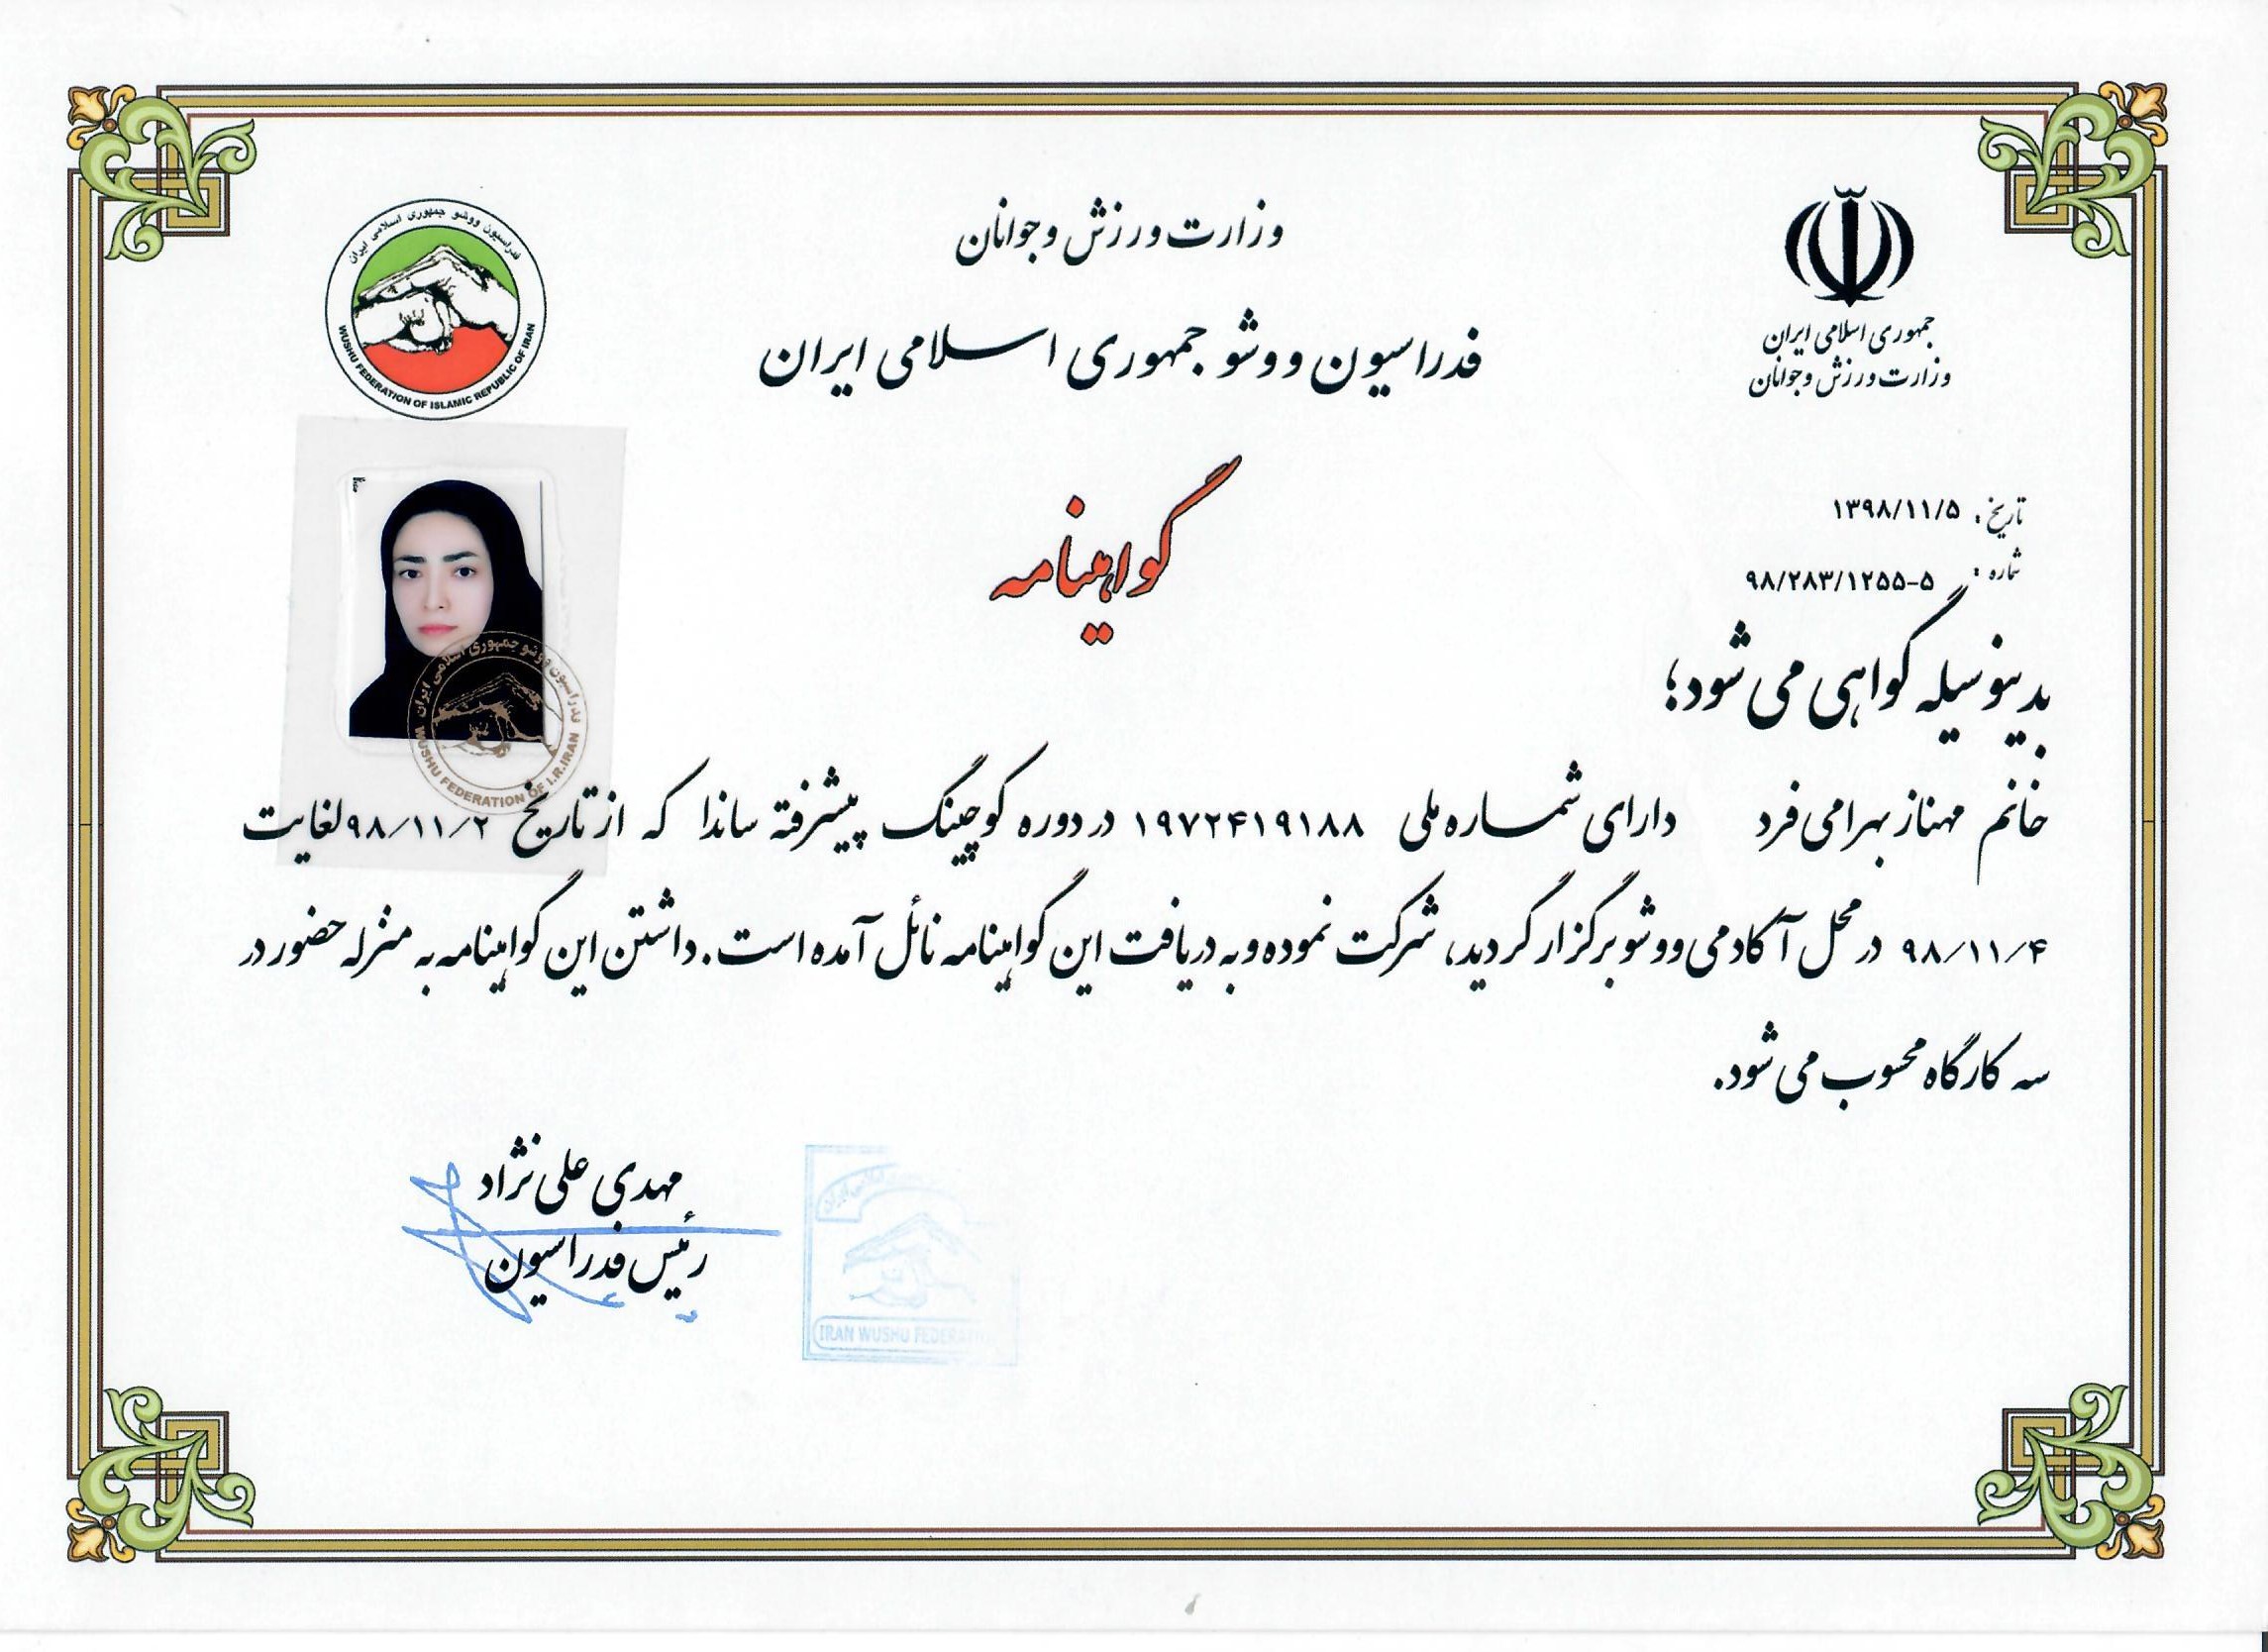 وزارت ورزش و جوانان
فدراسیون ووشو جمهوری اسلامی ایران
جمهوری اسلامی ایران
وزارت ورزش و جوانان
فدراسیون ووشو جمهوری اسلامی ایران
WUSHU FEDERATION OF ISLAMIC REPUBLIC OF IRAN
گواهینامه
تاریخ: ۱۳۹۸/۱۱/۵
شماره: ۹۸/۲۸۳/۱۲۵۵-۵
بدینوسیله گواهی می شود؛
خانم مهناز بهرامی فرد دارای شماره ملی ۱۹۷۲۴۱۹۱۸۸ در دوره کوچینگ پیشرفته ساندا که از تاریخ ۹۸/۱۱/۲ لغایت
۹۸/۱۱/۴ در محل آکادمی ووشو برگزار گردید، شرکت نموده و به دریافت این گواهینامه نائل آمده است. داشتن این گواهینامه به منزله حضور در
سه کارگاه محسوب می شود.
فدراسیون ووشو جمهوری اسلامی ایران
WUSHU FEDERATION OF I.R.IRAN
مهدی علی نژاد
رئیس فدراسیون
IRAN WUSHU